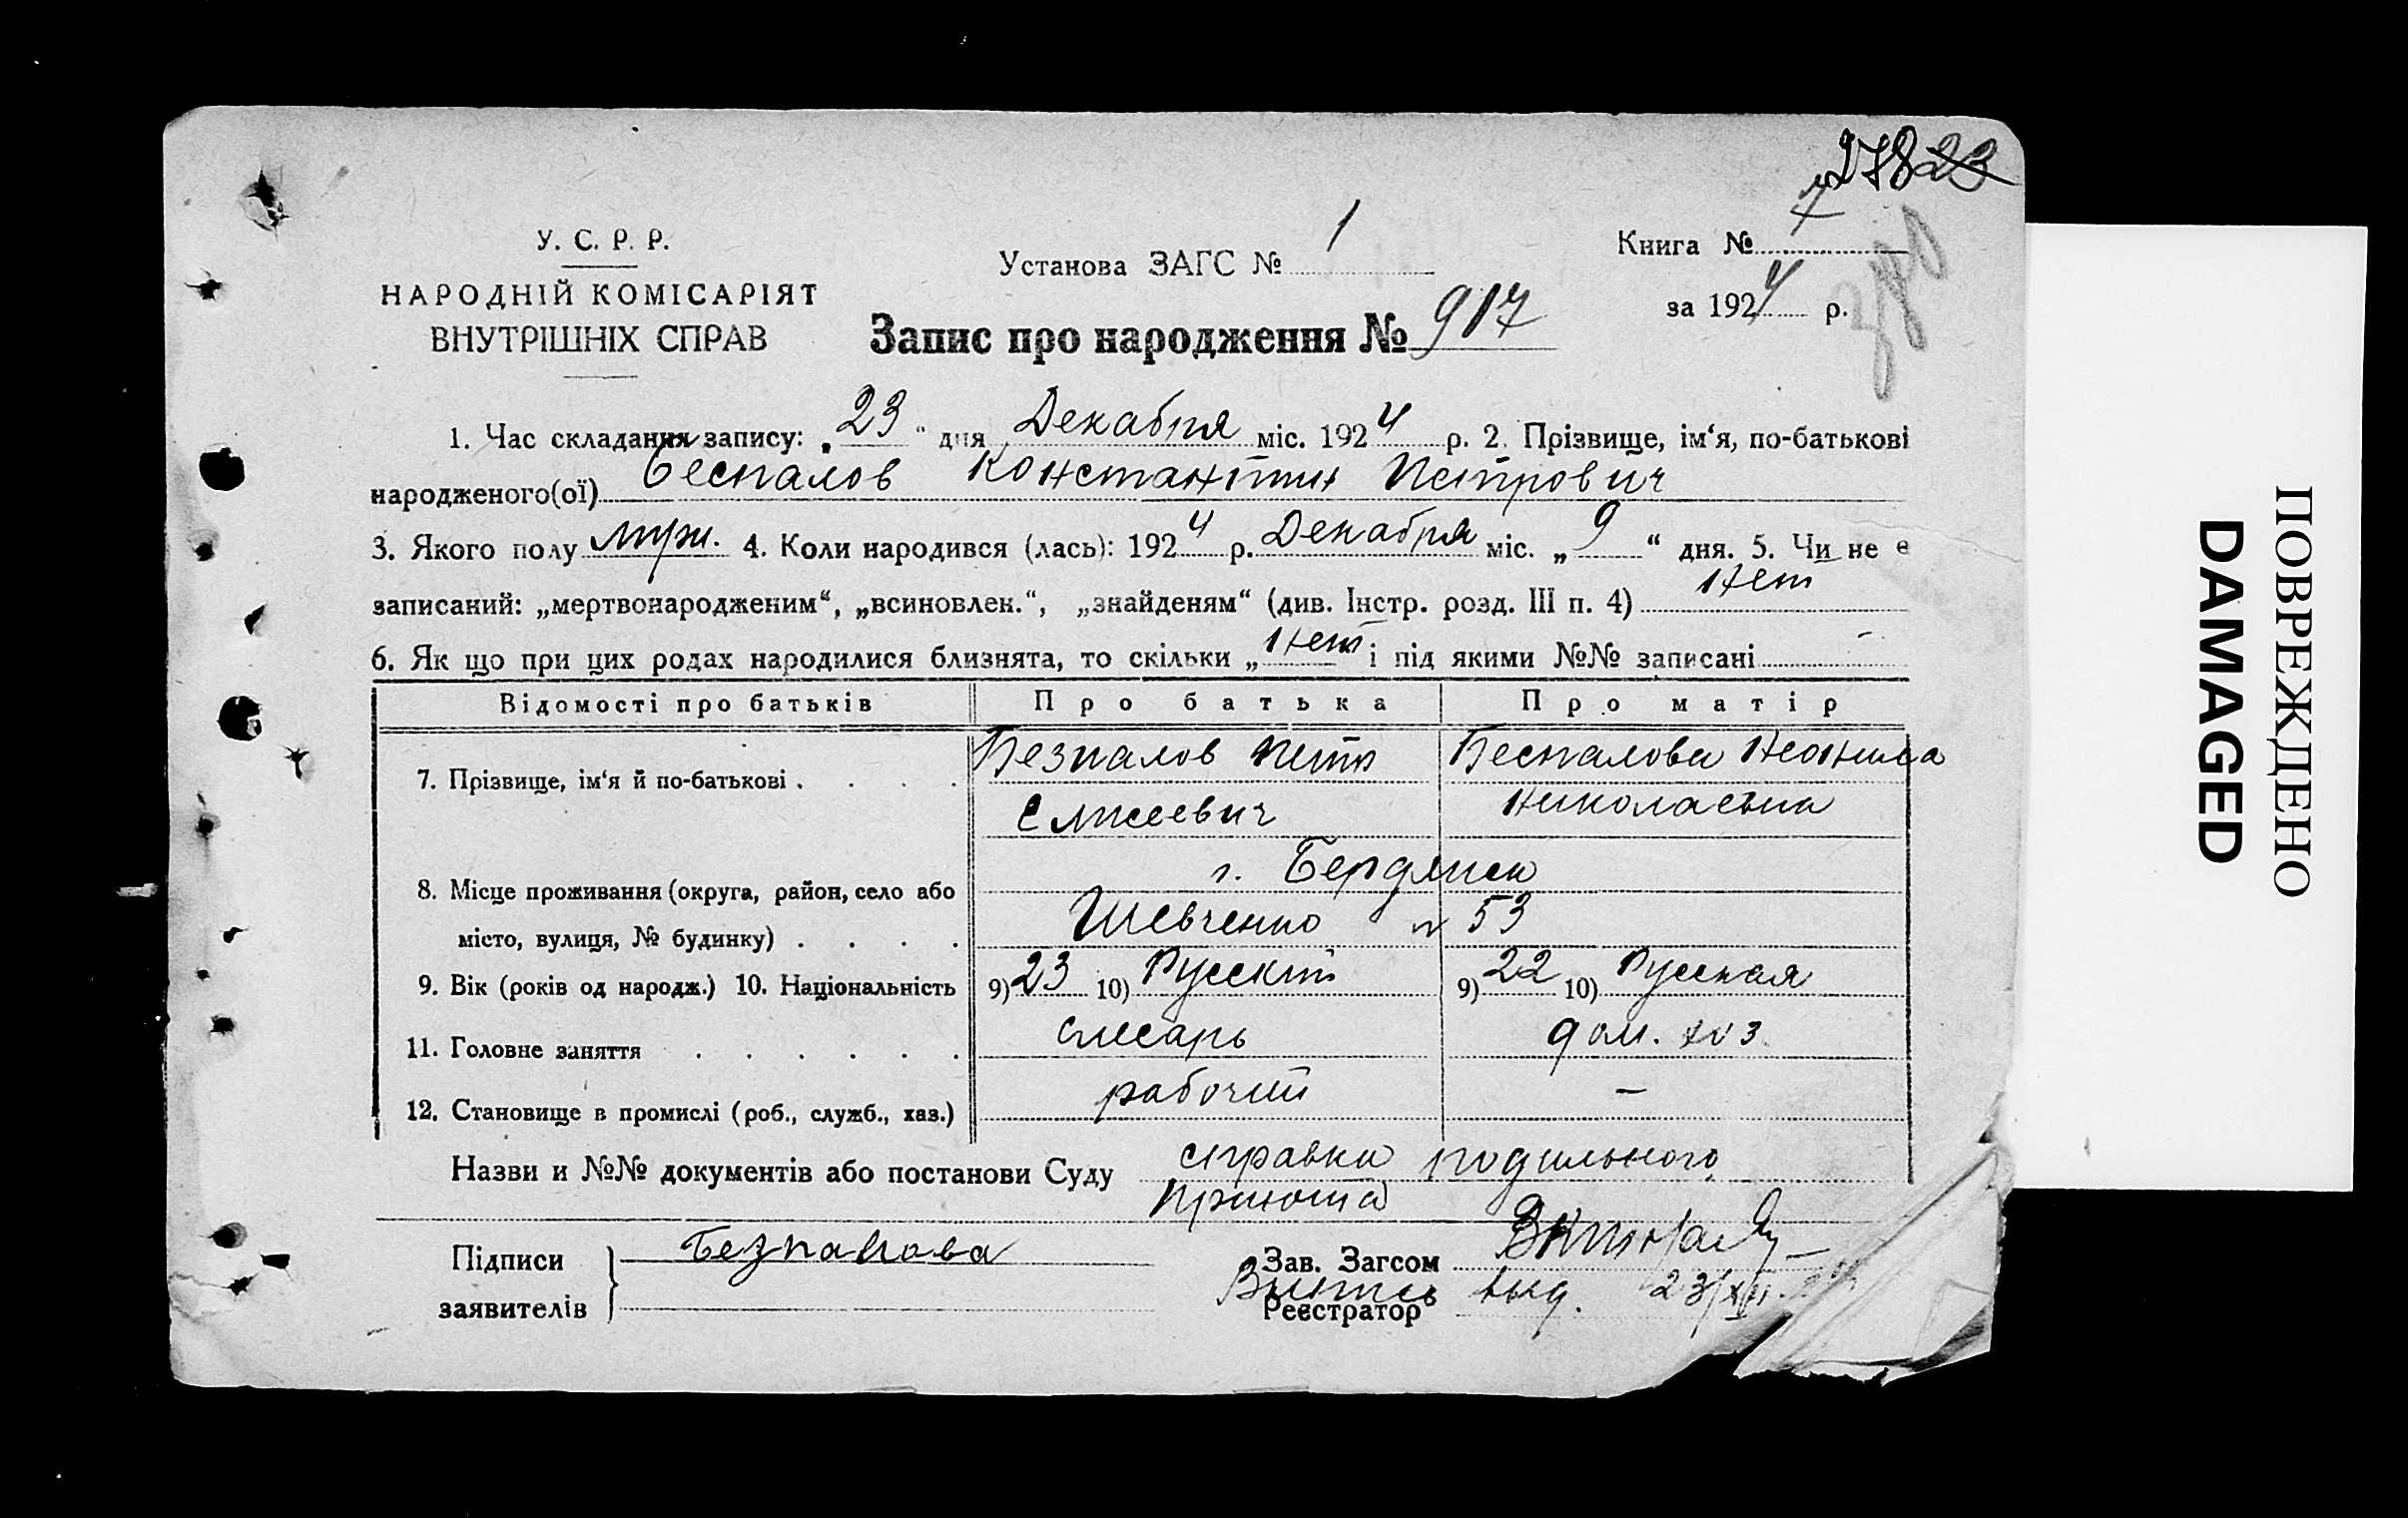 278 23
У. С. Р. Р.
НАРОДНІЙ КОМІСАРІЯТ
ВНУТРІШНІХ СПРАВ
Установа ЗАГС № 1
Книга № 7
за 1924 р.
Запис про народження № 917
1. Час складання запису: „23“ дня Декабря міс. 1924 р. 2. Прізвище, ім‘я, по-батькові
народженого(ої) Беспалов Константин Петрович
3. Якого полу муж. 4. Коли народився (лась): 1924 р. Декабря міс. „9“ дня. 5. Чи не е
записаний: „мертвонародженим“, „всиновлен.“, „знайденям“ (див. Інстр. розд. III п. 4) нет
6. Як що при цих родах народилися близнята, то скільки „нет і під якими №№ записані -
Відомості про батьків Про батька Про матір
7. Прізвище, ім‘я й по-батькові . . . . Безпалов Петр Беспалова Неонила
Елисеевич Николаевна
8. Місце проживання (округа, район, село або г. Бердянск
місто, вулиця, № будинку) . . . . Шевченко № 53
9. Вік (років од народж.) 10. Національність 9) 23 10) Русский 9) 22 10) Русская
11. Головне заняття . . . . . . слесарь дом. хоз.
12. Становище в промислі (роб., служб., хаз.) рабочий —
Назви и №№ документів або постанови Суду справка родильного
приюта
Підписи
заявителів
Безпалова
Зав. Загсом
Выпись выд. 23/XII.
Реєстратор
ПОВРЕЖДЕНО
DAMAGED